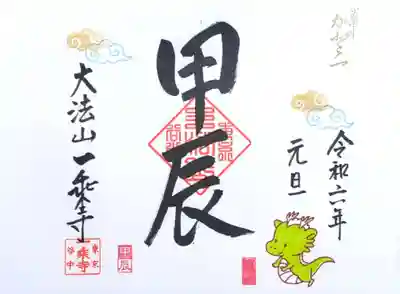 令和六年
元旦
甲辰
大法山一乗寺
甲辰